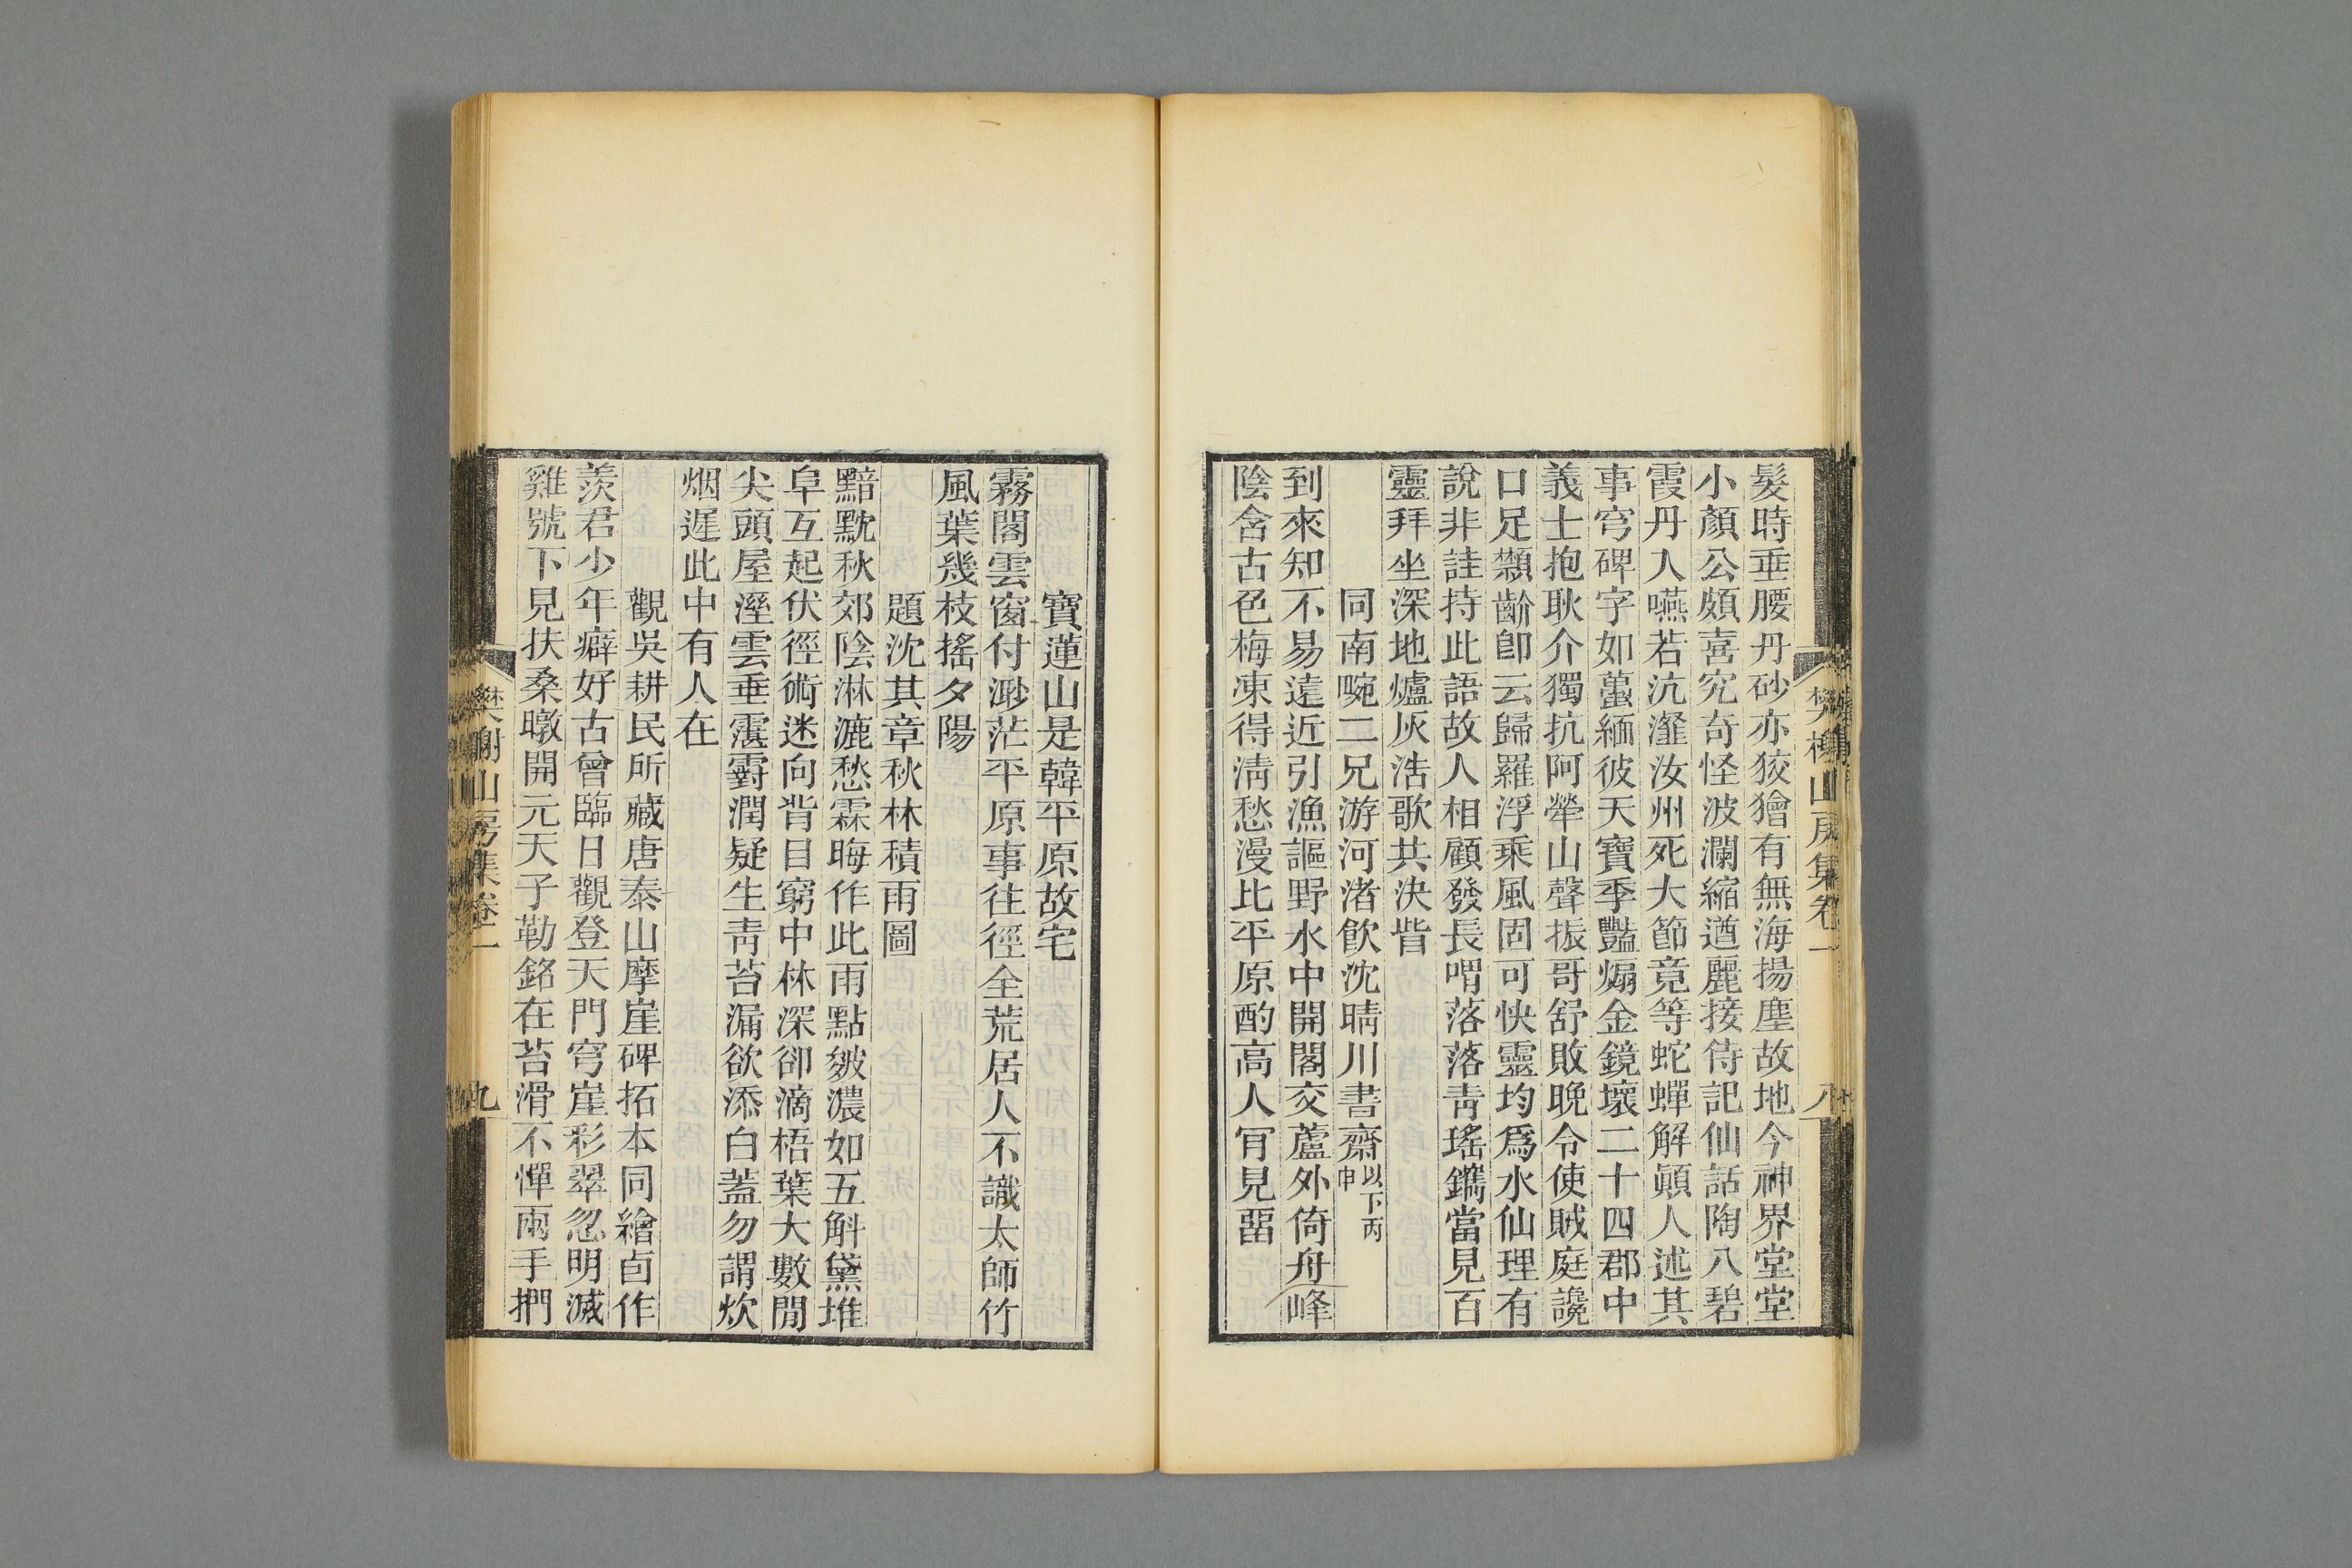 髮時垂腰丹砂亦狡獪有無海揚塵故地今神界堂堂
小顏公頗喜究奇怪波瀾縮遒麗接待記仙話陶八碧
霞丹人嚥若沆瀣汝州死大節竟等蛇蟬解顚人述其
事穹碑字如蠆緬彼天寶季豔煽金鏡壞二十四郡中
義士抱耿介獨抗阿犖山聲振哥舒敗晚令使賊庭讒
口足顙齘卽云歸羅浮乘風固可快靈均爲水仙理有
說非詿持此語故人相顧發長喟落落青瑤鐫當見百
靈拜坐深地爐灰浩歌共決眥
同南畹二兄游河渚飮沈晴川書齋以下丙申
到來知不易遠近引漁謳野水中開閣交蘆外倚舟峰
陰含古色梅凍得淸愁漫比平原酌高人肯見畱
樊榭山房集卷一
八
寶蓮山是韓平原故宅
霧閣雲窗付渺茫平原事往徑全荒居人不識太師竹
風葉幾枝搖夕陽
題沈其章秋林積雨圖
黯黕秋郊陰淋漉愁霖晦作此雨點皴濃如五斛黛堆
阜互起伏徑術迷向背目窮中林深卻滴梧葉大數閒
尖頭屋溼雲垂霮䨴潤疑生靑苔漏欲添白蓋勿謂炊
烟遲此中有人在
觀吳耕民所藏唐泰山摩崖碑拓本同繪卣作
羨君少年癖好古曾臨日觀登天門穹崖彩翠忽明滅
雞號下見扶桑暾開元天子勒銘在苔滑不憚兩手捫
樊榭山房集卷一
九